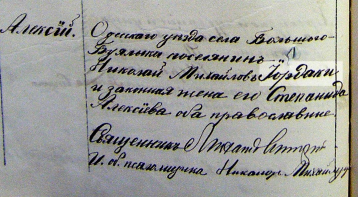 Алексѣй.
Одесскаго уѣзда села Большого-
Буялыка поселянинъ
Николай Михайловъ Іордаки
и законная жена его Степанида
Алексѣева оба православные
Священникъ
И. об. псаломщика Никаноръ